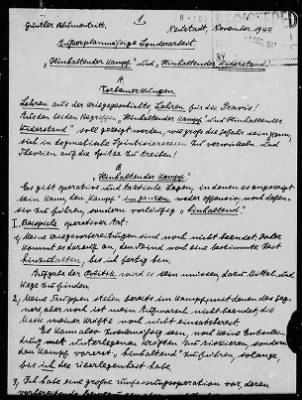 Günther Blumentritt.
1
Neustadt, November 1947
Außerplanmäßige Sonderarbeit.
„Hinhaltender Kampf" und „Hinhaltender Widerstand"
A.
Vorbemerkungen
Lehren aus der Kriegsgeschichte, Lehren für die Praxis!
An den beiden Begriffen „Hinhaltender Kampf" und „Hinhaltender
Widerstand" soll gezeigt werden, wie groß die Gefahr sein kann,
sich in dogmatische Spintisierereien zu verwickeln und
Theorien auf die Spitze zu treiben!
B.
„Hinhaltender Kampf."
Es gibt operative und taktische Lagen, in denen es angezeigt
sein kann, den Kampf weder offensiv, noch defen-
siv zu führen, sondern vorläufig „hinhaltend."
I. Beispiele operativer Art:
1) Meine Kriegsvorbereitungen sind noch nicht beendet. Daher
kommt es darauf an, den Feind noch eine bestimmte Zeit
hinzuhalten, bis ich fertig bin.
Aufgabe der Politik wird es sein müssen, dazu Mittel und
Wege zu finden.
2) Meine Truppen stehen bereits im Kampf mit denen des Geg-
ners, aber noch ist mein Aufmarsch nicht beendet, die
Masse meiner Kräfte noch nicht einsatzbereit.
Es kann also zweckmäßig sein, noch keine Entschei-
dung mit unterlegenen Kräften zu riskieren, sondern
den Kampf vorerst „hinhaltend" zu führen, solange,
bis ich die Überlegenheit habe.
3) Ich habe eine große Umfassungsoperation vor, deren